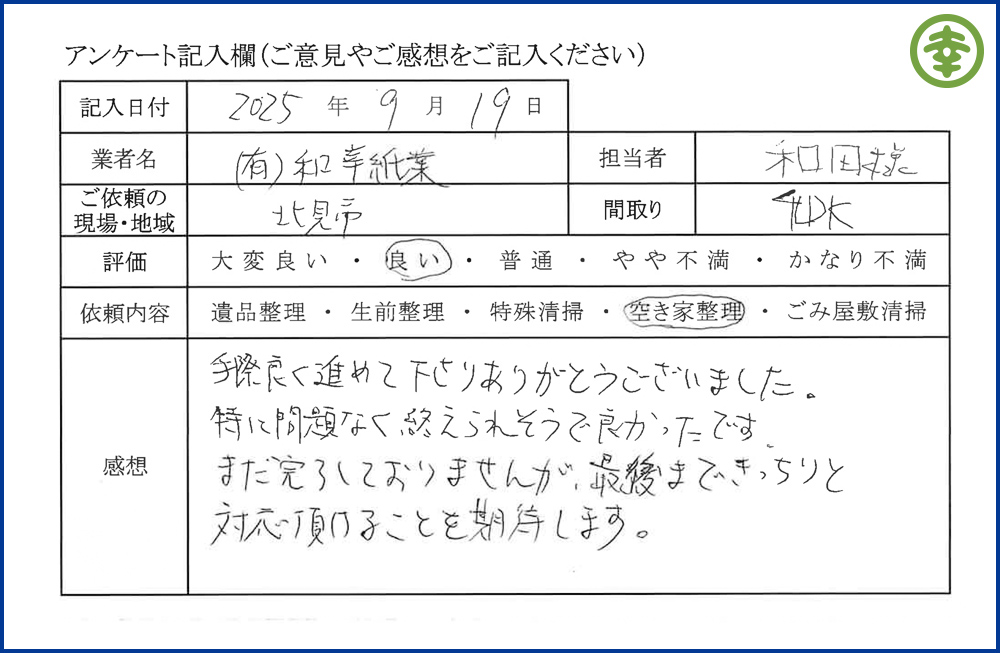 幸
アンケート記入欄（ご意見やご感想をご記入ください）
記入日付 2025 年 9 月 19 日
業者名 (有)和幸紙業 担当者 和田様
ご依頼の現場・地域 北見市 間取り 4LDK
評価 大変良い ・ 良い ・ 普通 ・ やや不満 ・ かなり不満
依頼内容 遺品整理 ・ 生前整理 ・ 特殊清掃 ・ 空き家整理 ・ ごみ屋敷清掃
感想
手際良く進めて下さりありがとうございました。
特に問題なく終えられそうで良かったです。
まだ完了しておりませんが、最後まできっちりと
対応頂けることを期待します。